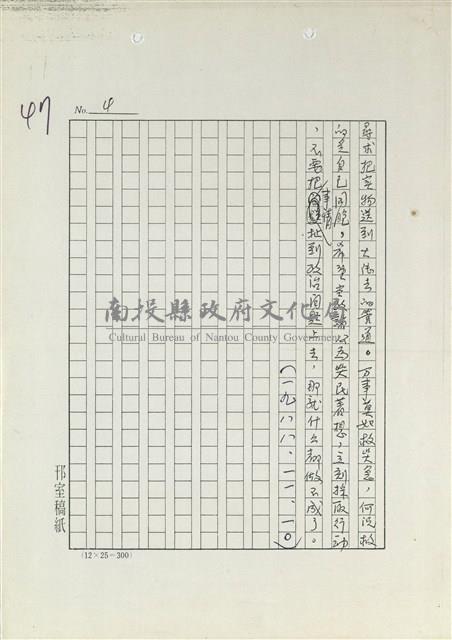 47
No. 4
尋求把實物送到大陸去的管道。万事莫如救災急，何況救
的是自己同胞，希望當政諸公為災民著想，立刻採取行動
，不要把事情扯到政治問題上去，那就什么都做不成了。
（一九八八、一一、一〇）
南投縣政府文化局
Cultural Bureau of Nantou County Government
邗室稿紙
(12×25=300)